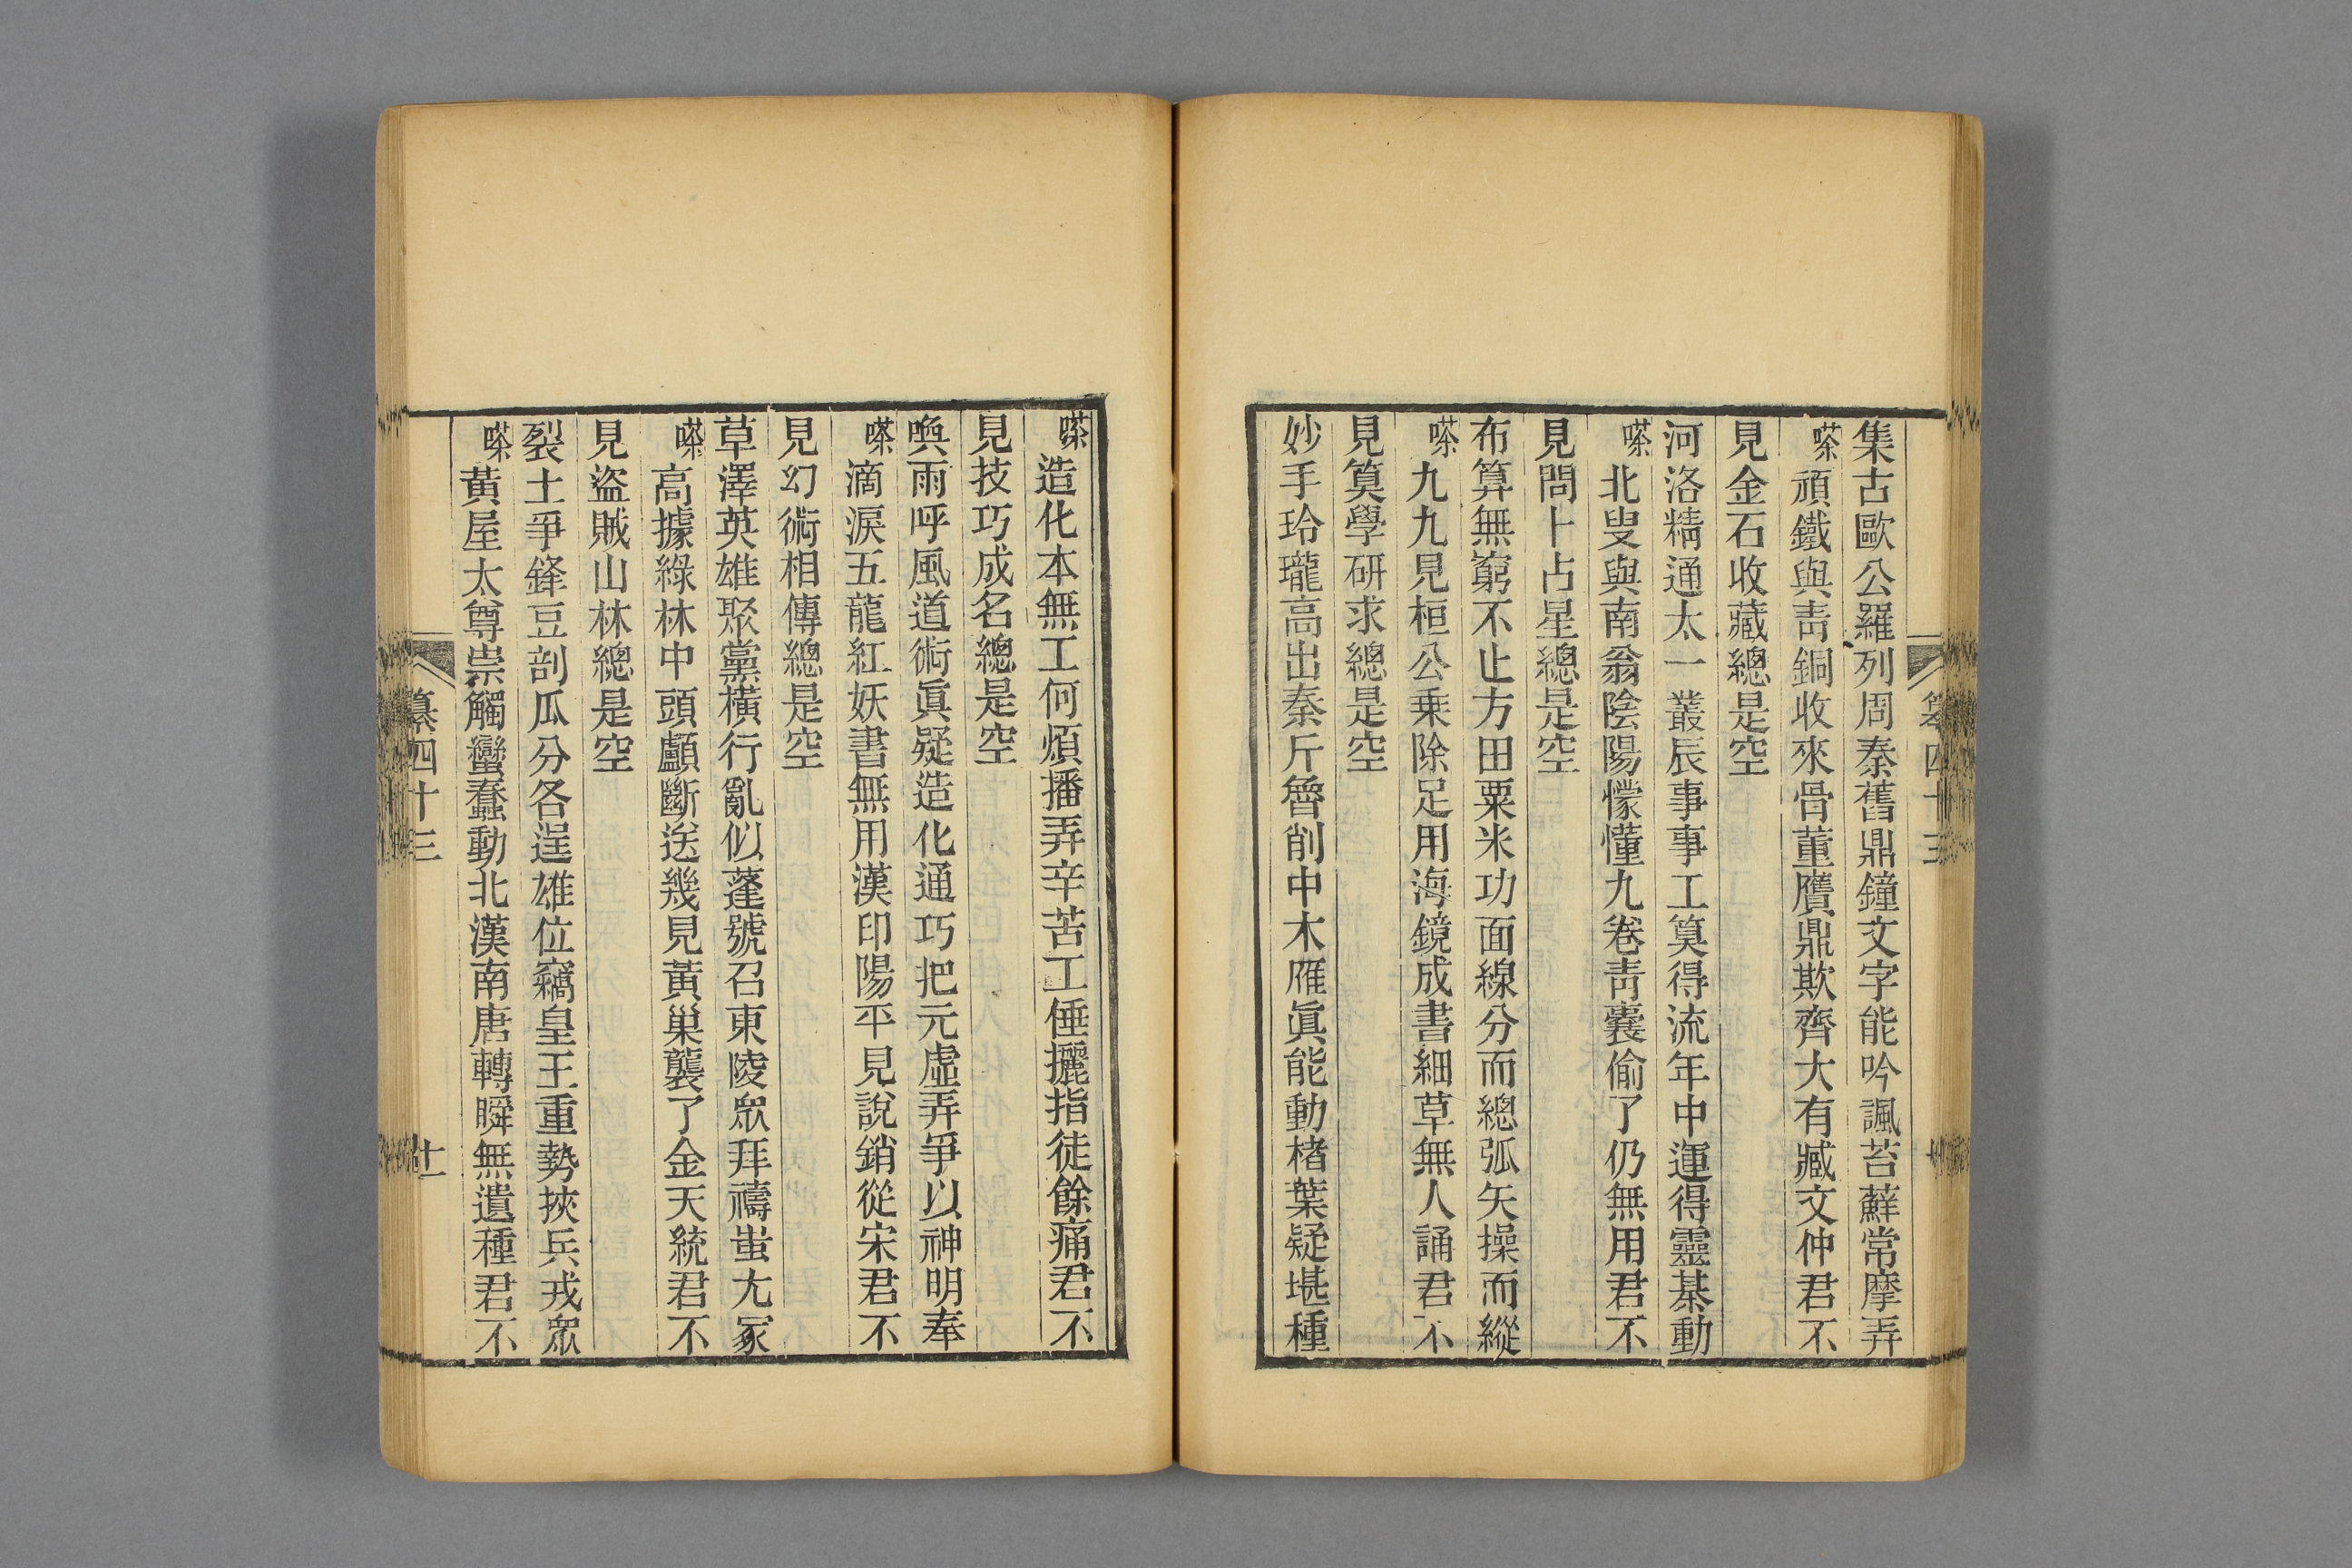 集古歐公羅列周秦舊鼎鐘文字能吟諷苔蘚常摩弄
嗏頑鐵與靑銅收來骨董贋鼎欺齊大有臧文仲君不
見金石收藏總是空
河洛精通太一叢辰事事工筭得流年中運得靈棊動
嗏北叟與南翁陰陽懞懂九卷靑囊偷了仍無用君不
見問卜占星總是空
布算無窮不止方田粟米功面線分而總弧矢操而縱
嗏九九見桓公乗除足用海鏡成書細草無人誦君不
見筭學研求總是空
妙手玲瓏高出秦斤魯削中木雁眞能動楮葉疑堪種
嗏造化本無工何煩播弄辛苦工倕攦指徒餘痛君不
見技巧成名總是空
喚雨呼風道術眞疑造化通巧把元虛弄爭以神明奉
嗏滴淚五龍紅妖書無用漢印陽平見說銷從宋君不
見幻術相傳總是空
草澤英雄聚黨橫行亂似蓬號召東陵眾拜禱蚩尤冢
嗏高據綠林中頭顱斷送幾見黃巢襲了金天統君不
見盜賊山林總是空
裂土爭鋒豆剖瓜分各逞雄位竊皇王重勢挾兵戎眾
嗏黃屋太尊崇觸蠻蠢動北漢南唐轉瞬無遺種君不
纂四十三
十一